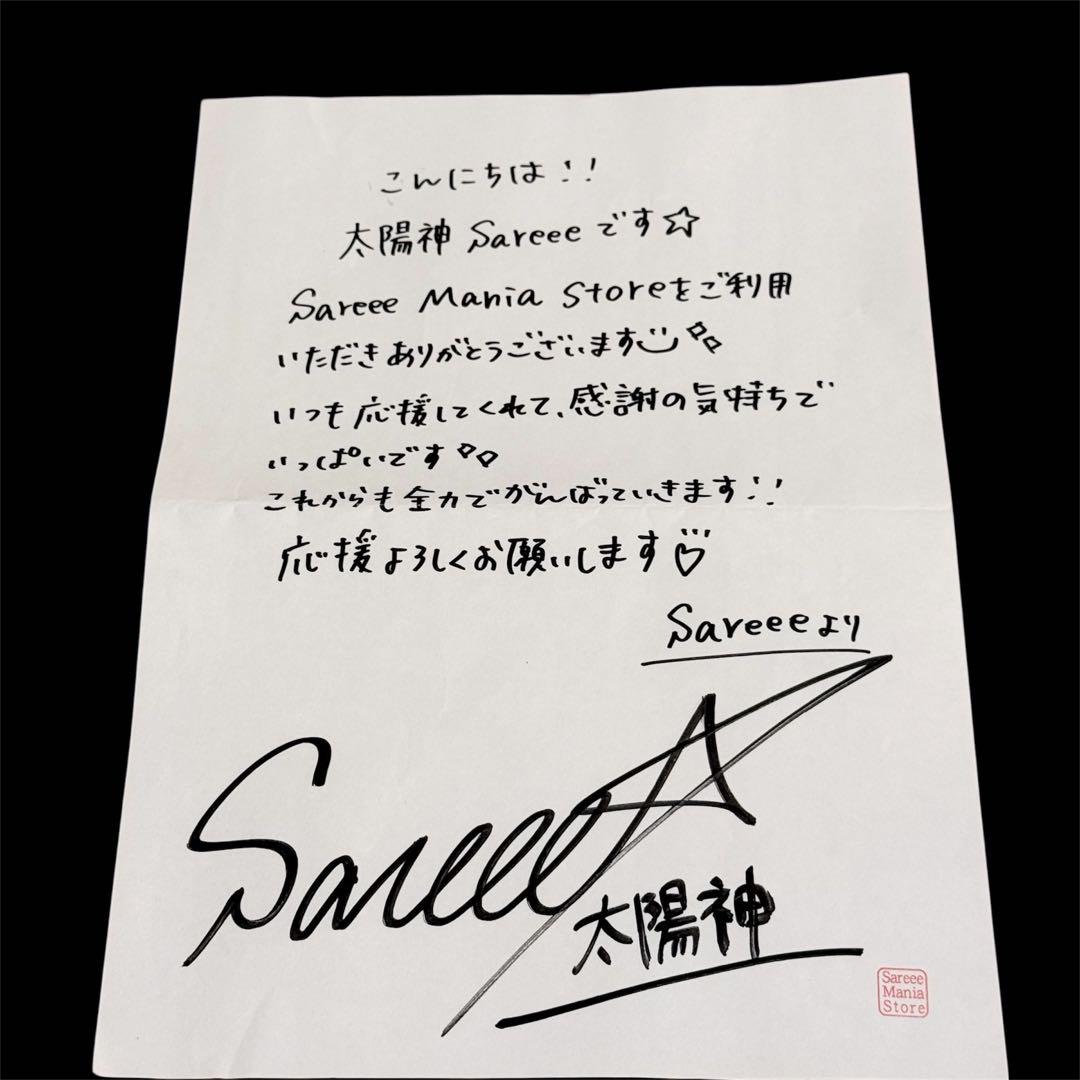 こんにちは!!
太陽神 Sareeeです☆
Sareee Mania Storeをご利用
いただきありがとうございます
いつも応援してくれて、感謝の気持ちで
いっぱいです
これからも全力でがんばっていきます!!
応援よろしくお願いします♡
Sareeeより
Sareee☆
太陽神
Sareee
Mania
Store